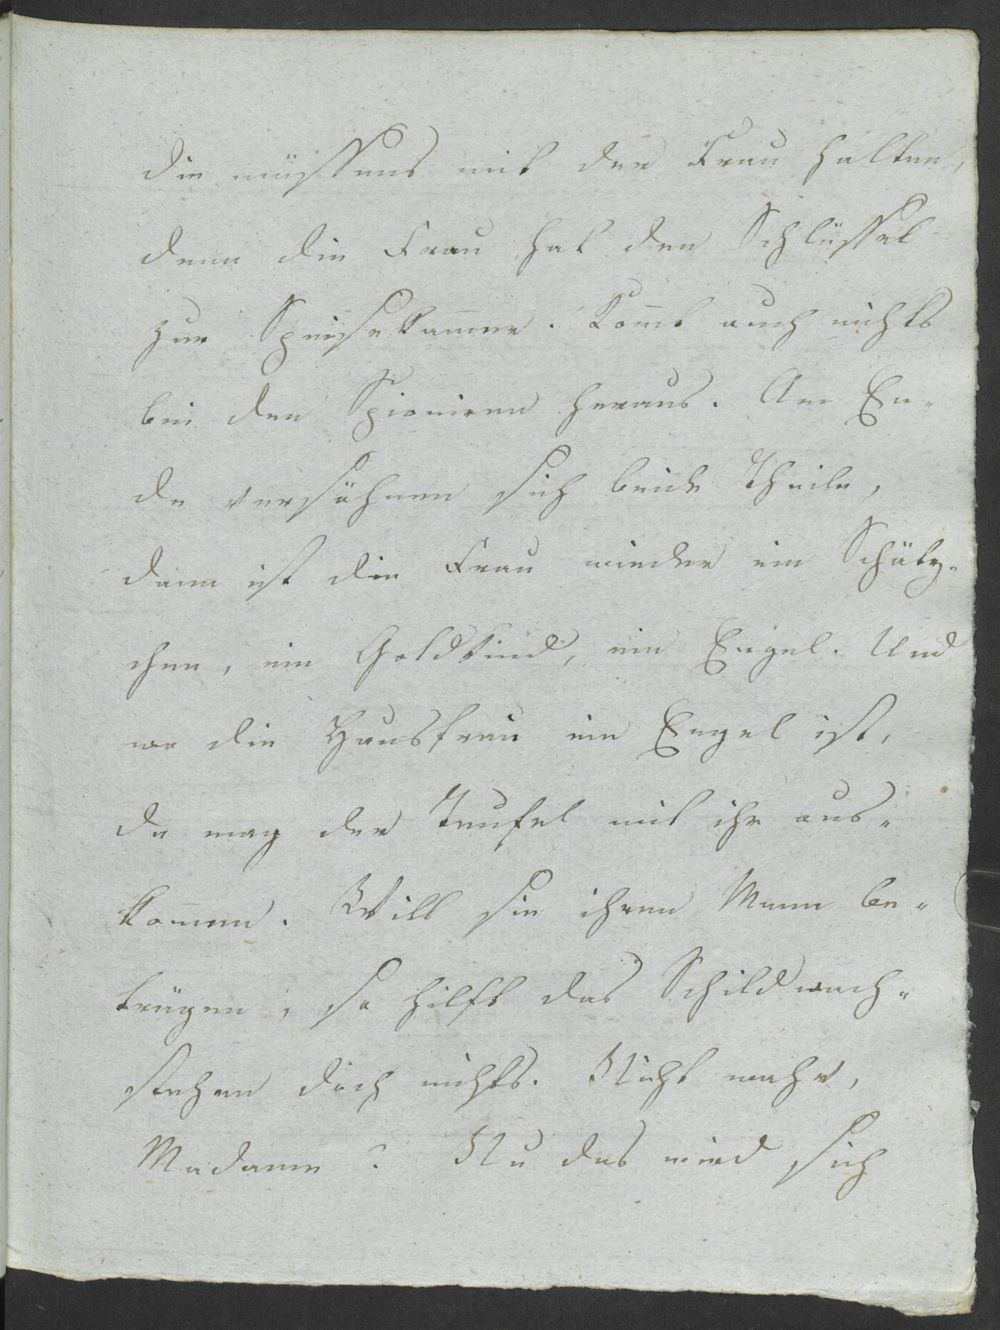 die müssens mit der Frau halten,
denn die Frau hat den Schlüssel
zur Speisekam̄er. Kom̄t auch nichts
bei den Spioniren heraus. Am En-
de versöhnen sich beide Theile,
dann ist die Frau wieder ein Schätz-
chen, ein Goldkind, ein Engel. Und
wo die Hausfrau ein Engel ist,
da mag der Teufel mit ihr aus-
kom̄en. Will sie ihren Mann be-
trügen, so hilft das Schildwach-
stehen doch nichts. Nicht wahr,
Madame? Nu das wird sich